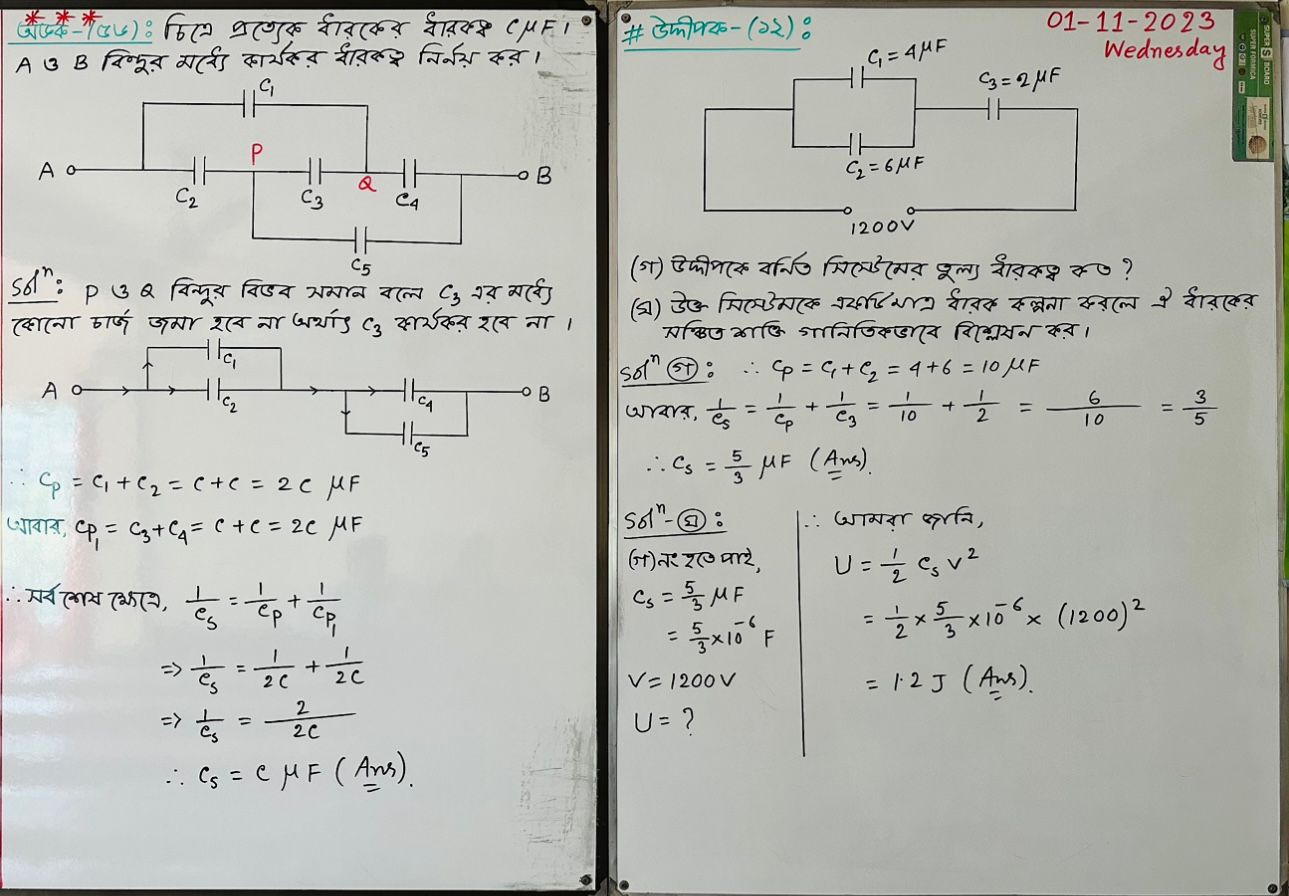 * * *
অংক-(৫৬): চিত্রে প্রত্যেক ধারকের ধারকত্ব C μF।
A ও B বিন্দুর মধ্যে কার্যকর ধারকত্ব নির্নয় কর।
C₁
P
A
B
C₂
C₃
Q
C₄
C₅
Solⁿ: P ও Q বিন্দুর বিভব সমান বলে C₃ এর মধ্যে
কোনো চার্জ জমা হবে না অর্থাৎ C₃ কার্যকর হবে না।
C₁
A
B
C₂
C₄
C₅
∴ Cp = C₁ + C₂ = C + C = 2C μF
আবার, Cp₁ = C₃ + C₄ = C + C = 2C μF
∴ সর্বশেষ ক্ষেত্রে, 1/Cs = 1/Cp + 1/Cp₁
=> 1/Cs = 1/2C + 1/2C
=> 1/Cs = 2/2C
∴ Cs = C μF (Ans).
01-11-2023
Wednesday
# উদ্দীপক-(১২):
C₁ = 4μF
C₃ = 2μF
C₂ = 6μF
1200V
(গ) উদ্দীপকে বর্নিত সিস্টেমের তুল্য ধারকত্ব কত?
(ঘ) উক্ত সিস্টেমকে একটিমাত্র ধারক কল্পনা করলে ঐ ধারকের
সঞ্চিত শক্তি গানিতিকভাবে বিশ্লেষন কর।
Solⁿ (গ): ∴ Cp = C₁ + C₂ = 4 + 6 = 10 μF
আবার, 1/Cs = 1/Cp + 1/C₃ = 1/10 + 1/2 = 6/10 = 3/5
∴ Cs = 5/3 μF (Ans).
Solⁿ-(ঘ):
(গ)নং হতে পাই,
Cs = 5/3 μF
= 5/3 × 10⁻⁶ F
V = 1200V
U = ?
∴ আমরা জানি,
U = 1/2 Cs V²
= 1/2 × 5/3 × 10⁻⁶ × (1200)²
= 1.2 J (Ans).
SUPER S BOARD
SUPER FORMICA